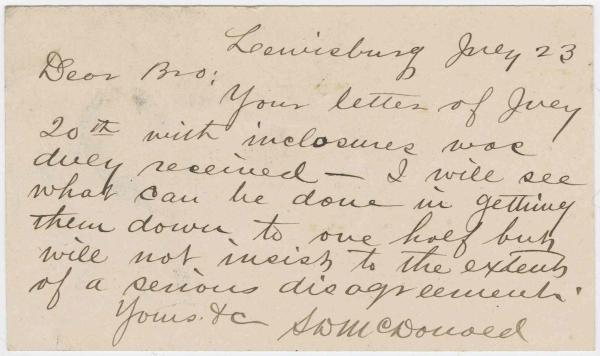 Lewisburg July 23
Dear Bro:
Your letter of July
20th with inclosures was
duly received — I will see
what can be done in getting
them down to one half but
will not insist to the extent
of a serious disagreement.
Yours &c S D McDonald